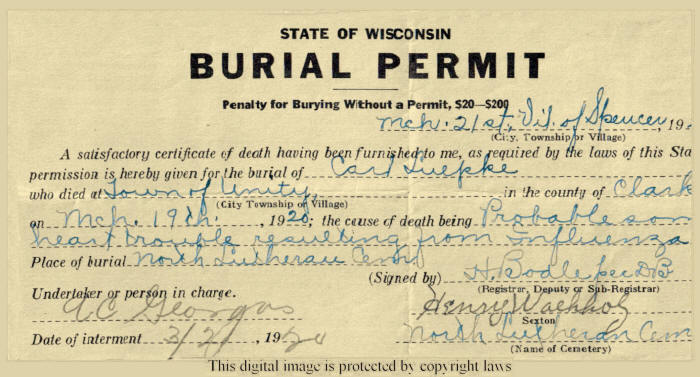 STATE OF WISCONSIN
BURIAL PERMIT
Penalty for Burying Without a Permit, $20—$200
Mch. 21st, Vil. of Spencer, 19
(City, Township or Village)
A satisfactory certificate of death having been furnished to me, as required by the laws of this Sta
permission is hereby given for the burial of Carl Luepke
who died at Town of Unity, in the county of Clark
(City Township or Village)
on Mch. 19th. , 1920; the cause of death being Probable som
heart trouble resulting from Influenza
Place of burial North Lutheran Cem
(Signed by) H. per
(Registrar, Deputy or Sub-Registrar)
Undertaker or person in charge.
A.C. Henry
Sexton
Date of interment 3/21 , 1920 North Lutheran Cem
(Name of Cemetery)
This digital image is protected by copyright laws